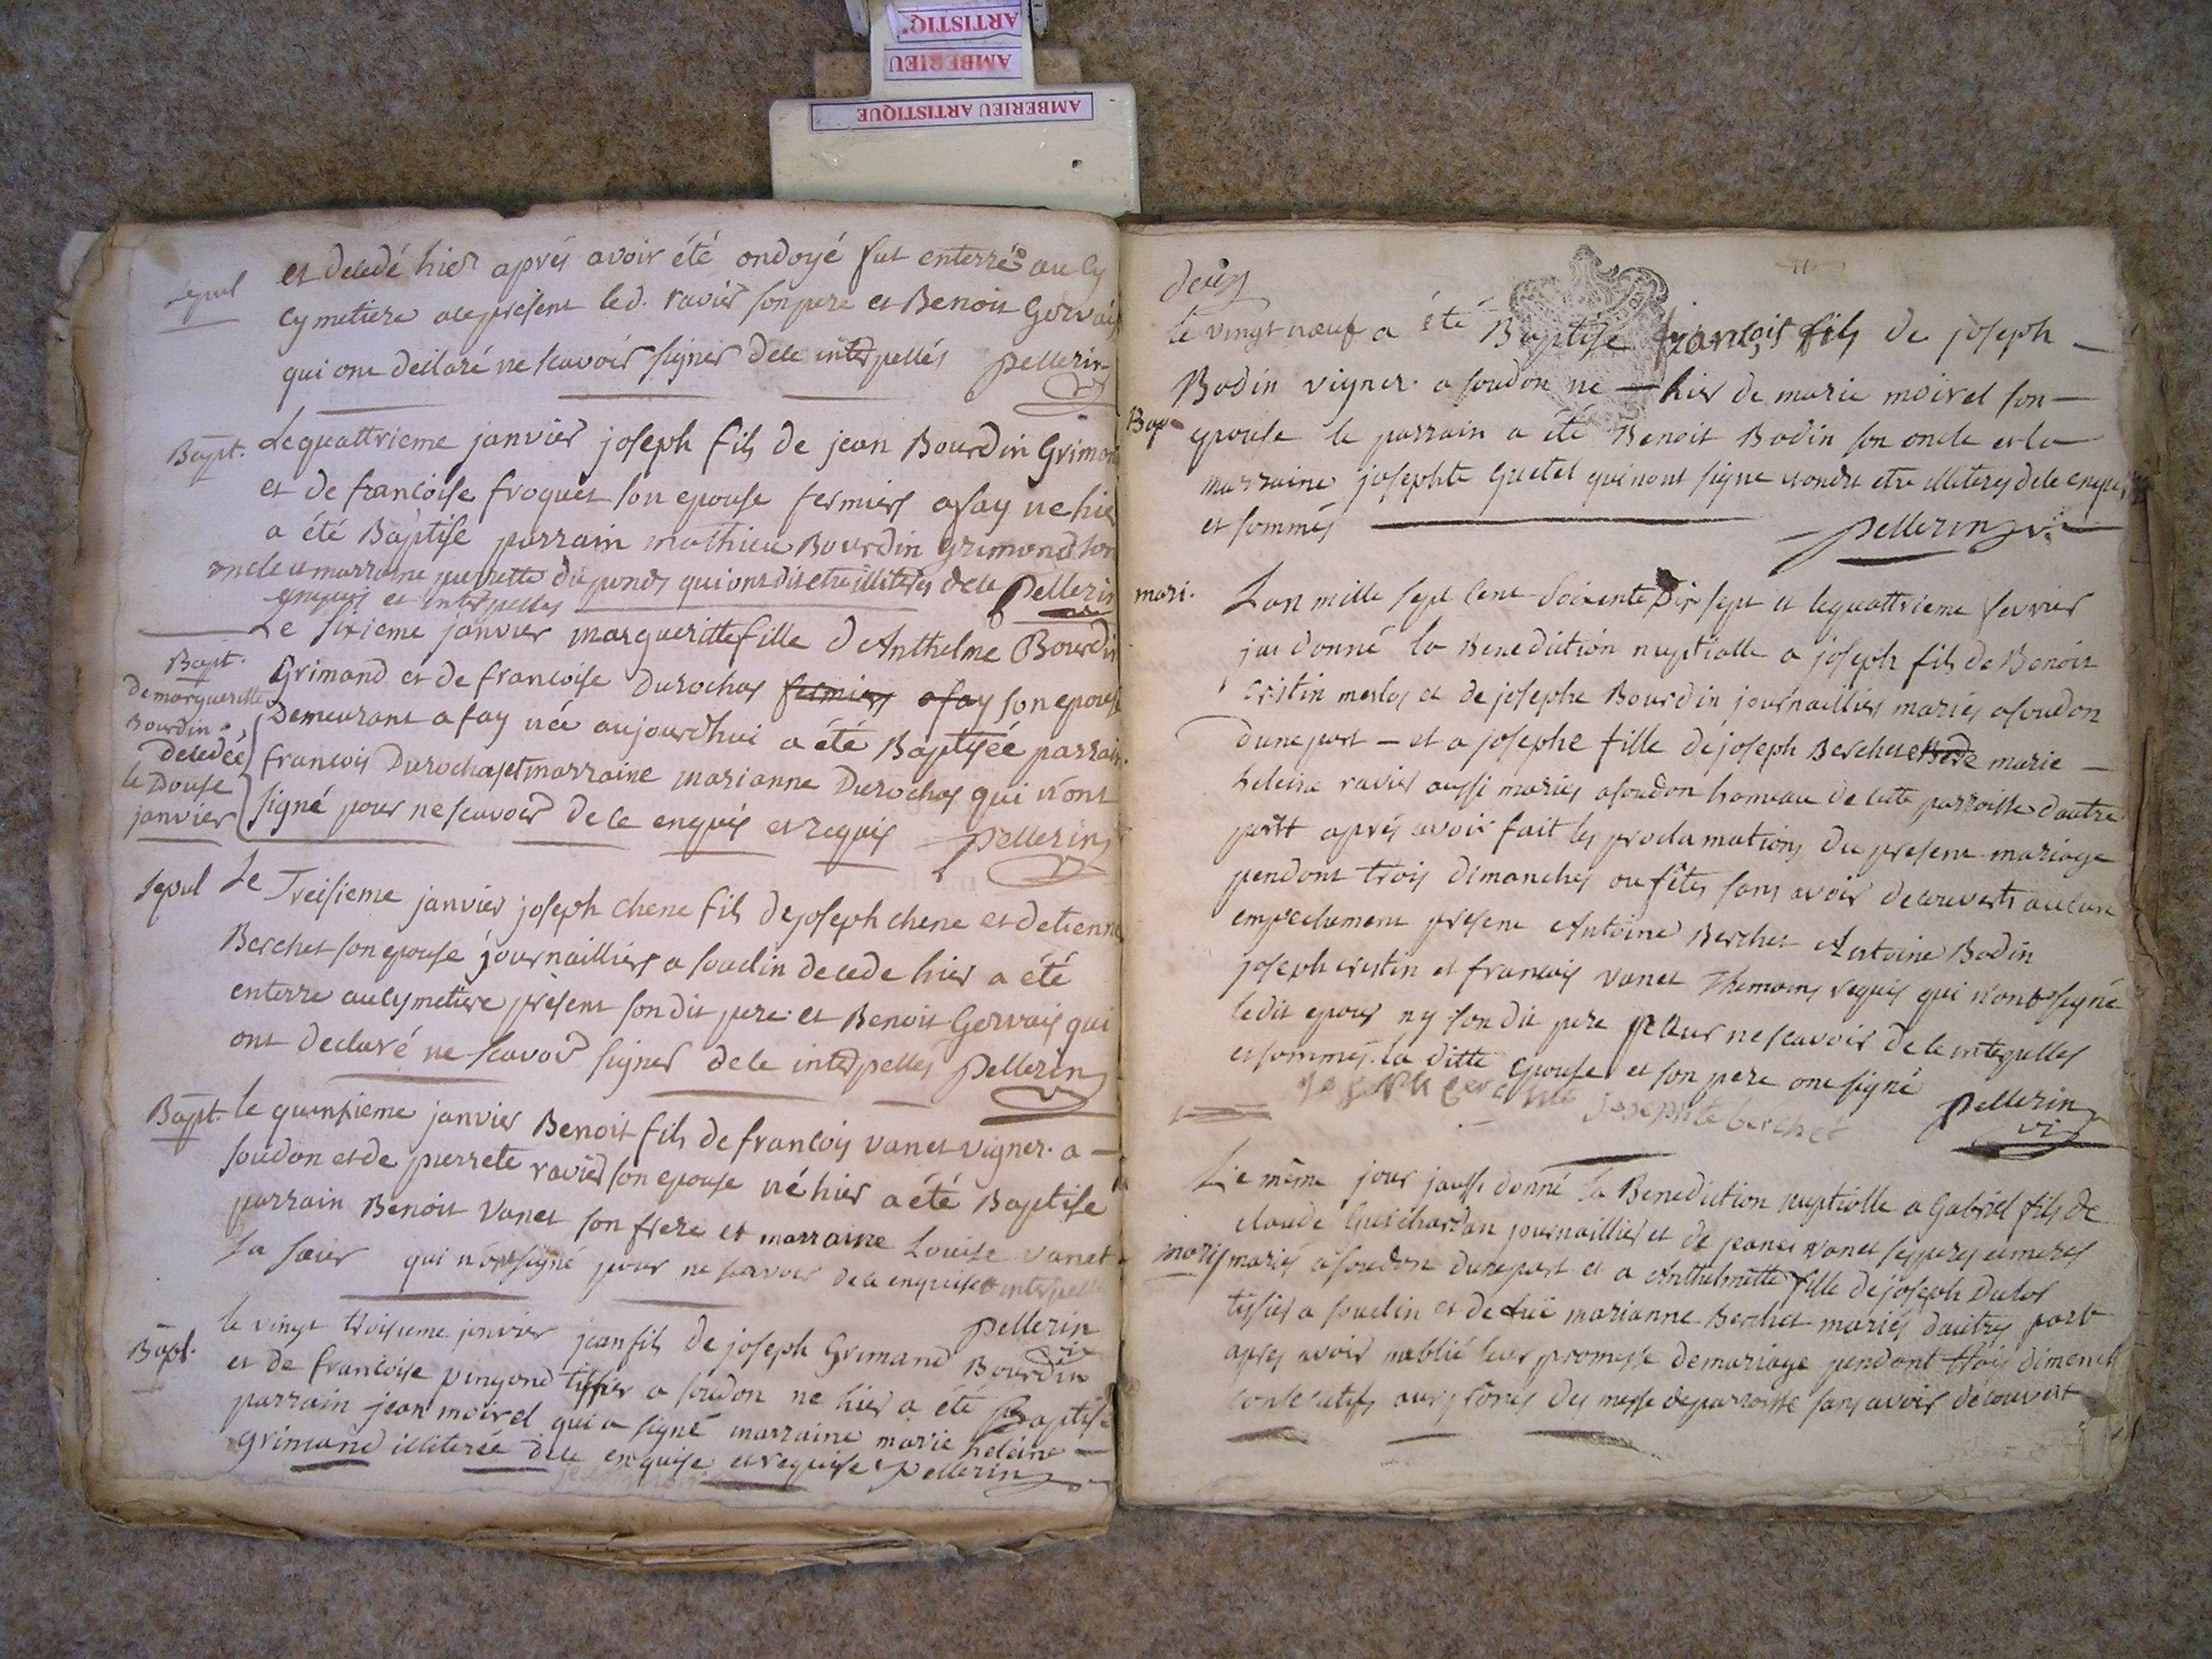 ARTISTIQ
AMBERIEU
AMBERIEU ARTISTIQUE
sepul
et decedé hier aprés avoir été ondoyé fut enterré au cy
cymetiere ace present led. ravier son pere et Benoit Gervais
qui ont declaré ne scavoir signer de ce interpellés pellerin
Bapt. Le quattrieme janvier joseph fils de jean Bourdin Grimon
et de francoise froquet son epouse fermiers a fay ne hier
a été Baptise parrain mathieu Bourdin grimond son
oncle et marraine pierrette duponds qui ont dit etre illiteres de ce pellerin
enquis et interpelles
Le sixieme janvier margueritte fille d'Anthelme Bourdin
Bapt.
de margueritte
Bourdin
decedée
le Douse
janvier
Grimand et de francoise Durochas fermiers a fay son epouse
Demeurant a fay née aujourdhui a été Baptisée parrain
francois Durochas et marraine marianne Durochas qui n'ont
signé pour ne scavoir de ce enquis et requis pellerin
sepul Le Treisieme janvier joseph chene fils de joseph chene et detienne
Berchet son epouse journailliers a souclin decede hier a été
enterre au cymetiere present son dit pere et Benoit Gervais qui
ont declaré ne scavoir signer de ce interpellés pellerin
Bapt. le quinsieme janvier Benoit fils de francois vanet vigner. a
soudon et de pierrete ravier son epouse né hier a été Baptise
parrain Benoit vanet son frere et marraine Louise vanet
sa sœur qui n'ont signé pour ne scavoir de ce enquis et interpelle
pellerin
Bapt.
le vingt troisieme janvier jean fils de joseph Grimand Bourdin
et de francoise pingond tissier a soudon ne hier a été Baptise
parrain jean moirel qui a signé marraine marie heleine
Grimand illiterée de ce enquise et requise pellerin
deux
le vingt neuf a été Baptise françois fils de joseph
Bodin vigner. a soudon ne hier de marie moirel son
Bap
epouse le parrain a été Benoit Bodin son oncle et la
marraine josephte Guetel qui nont signe etre illiteres de ce enquis
et sommés pellerin
mari. Lan mille sept cent soixente Dix sept et le quattrieme fevrier
jai donné la Benediction nuptialle a joseph fils de Benoit
cristin merlos et de josephe Bourdin journailliers mariés a soudon
dune part et a josephe fille de joseph Berchet et de marie
heleine ravier aussi mariés a soudon hameau de cette parroisse dautre
part aprés avoir fait les proclamations du present mariage
pendant trois dimanches ou fêtes sans avoir decouverts aucun
empechement present Antoine Berchet Antoine Bodin
joseph cristin et francois vanet Themoins requis qui n'ont signé
ledit epoux ny son dit pere pour ne scavoir de ce interpelles
et sommés. la ditte epouse et son pere ont signé
joseph berchet josephte berchet pellerin
Le même jour jaussi donné la Benediction nuptialle a Gabriel fils de
claude Guichardan journaillier et de jeane vanet ses peres et meres
maris mariés a soudon dune part et a Anthelmette fille de joseph Duclos
tissier a souclin et de marianne Berchet mariés dautres part
apres avoir publié leur promesse de mariage pendant trois dimench
consecutifs aux prônes des messe de parroisse sans avoir découvert